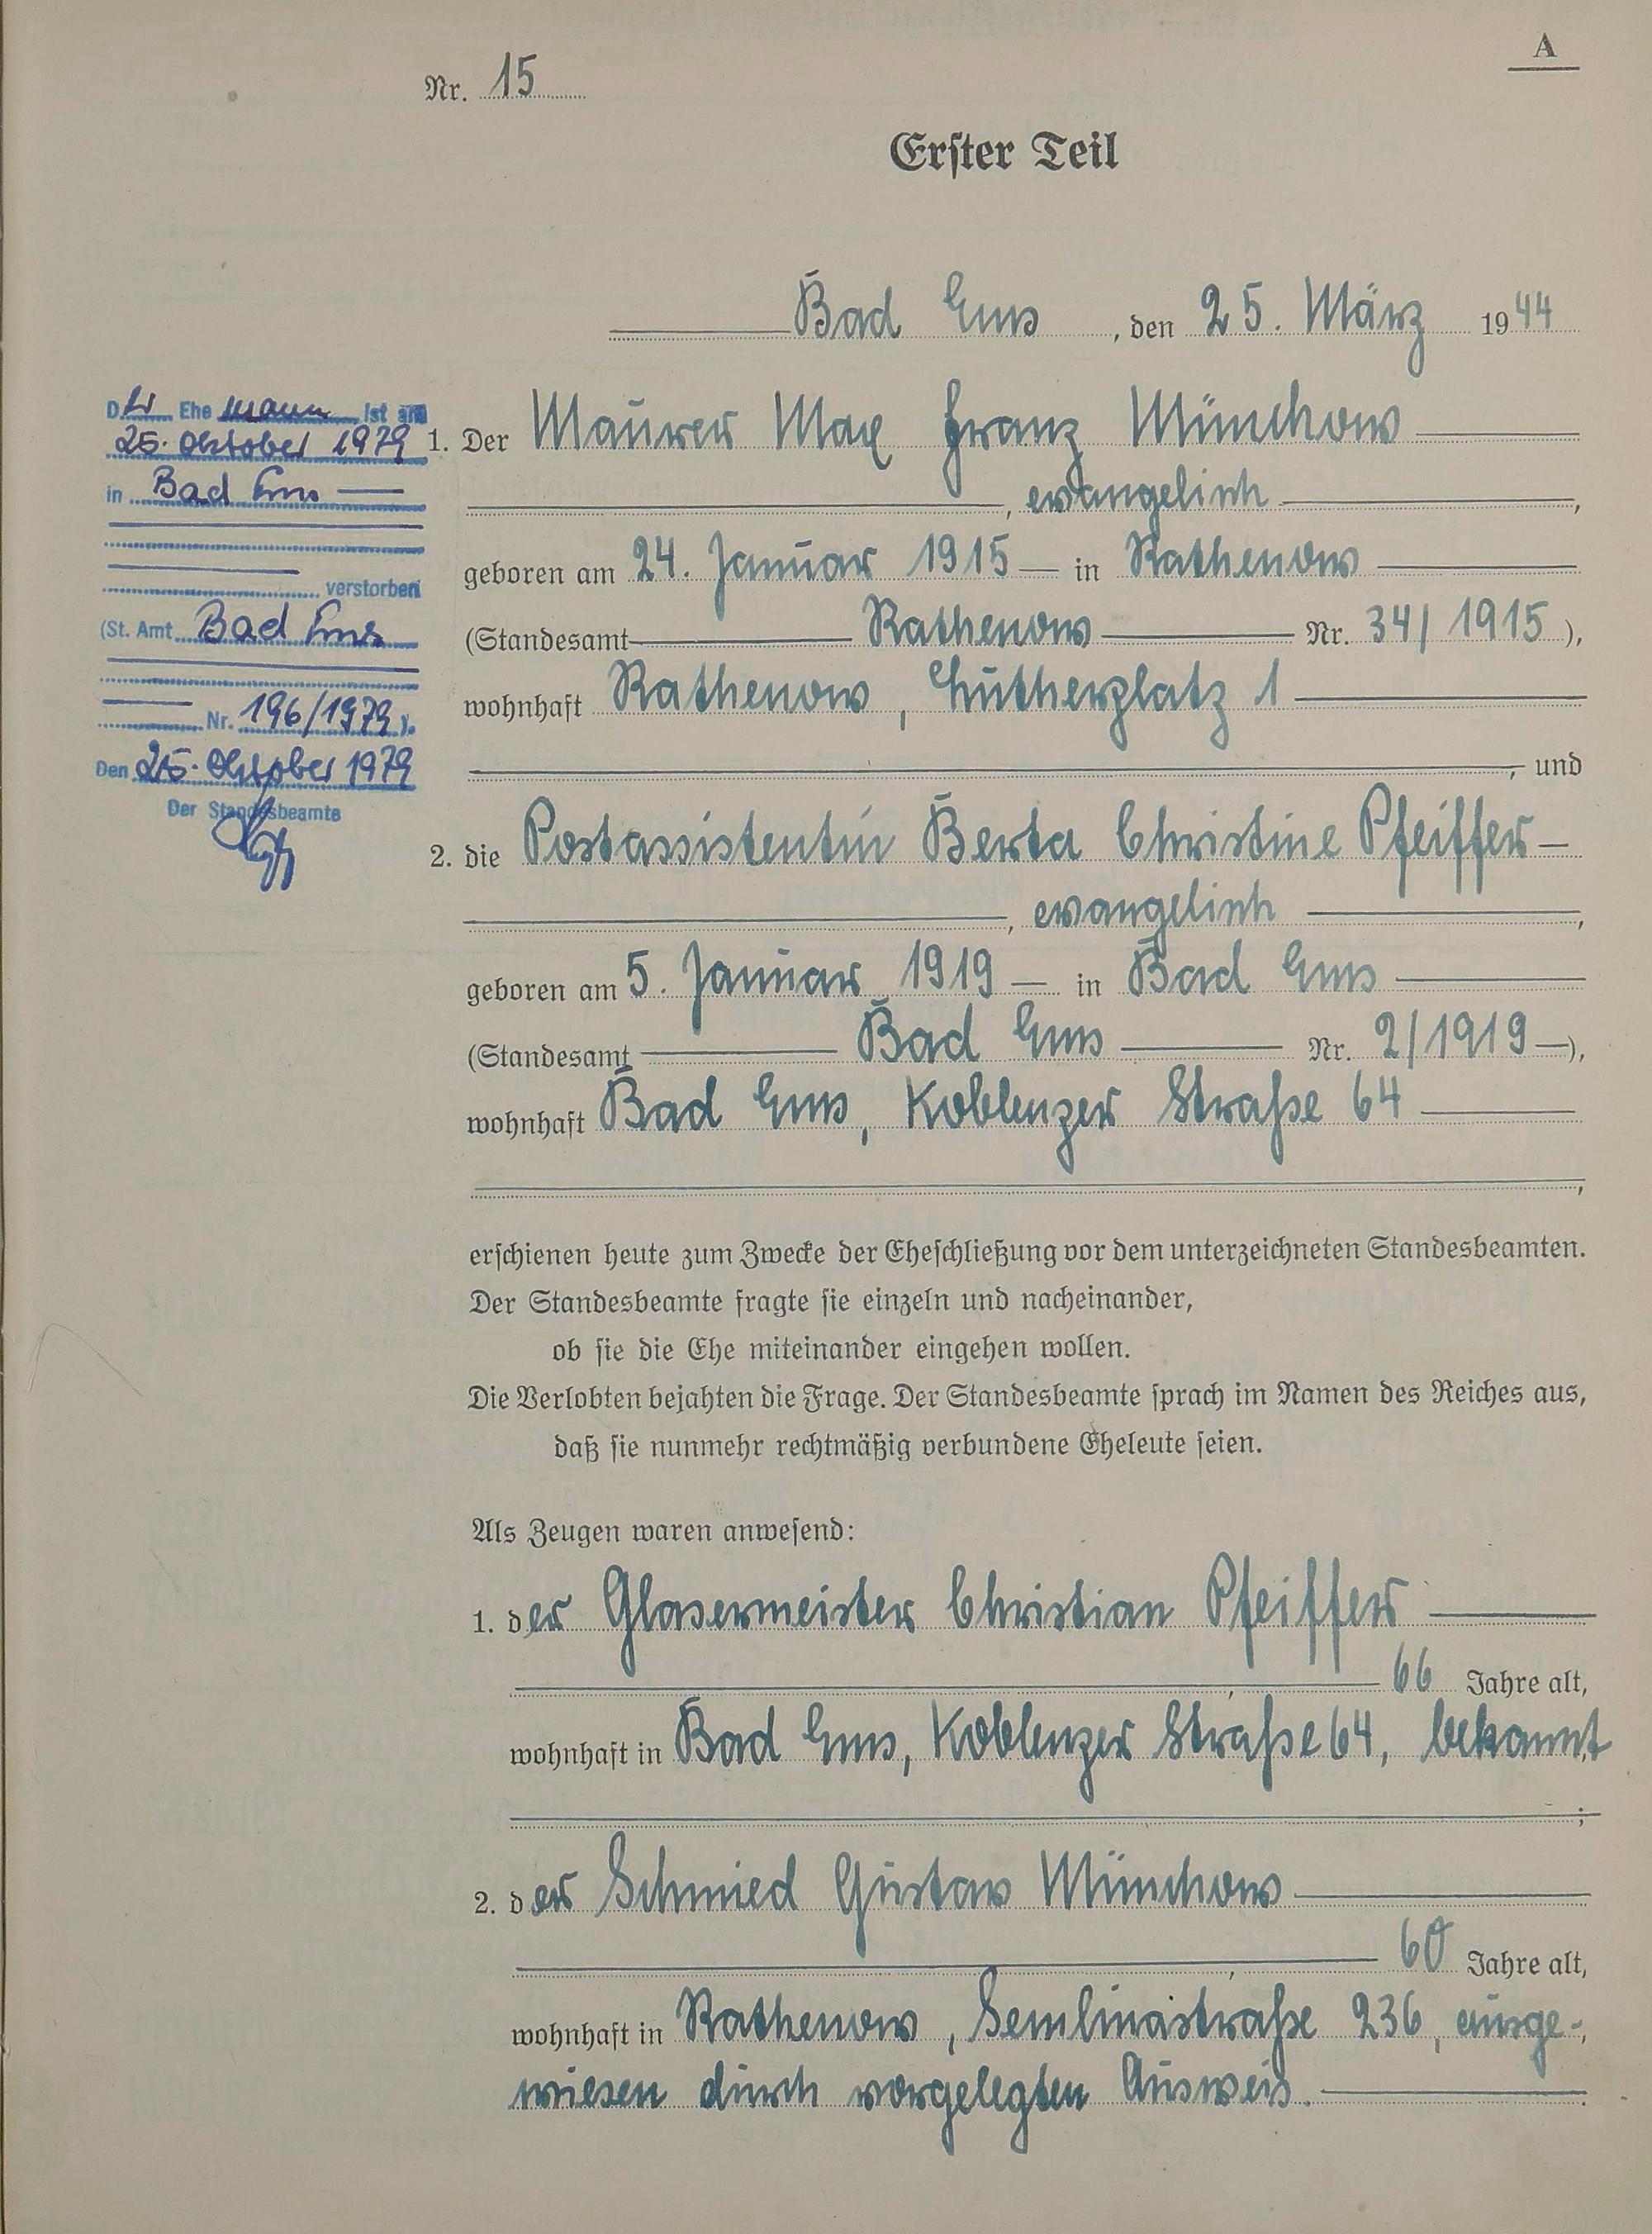 A
Nr. 15
Erster Teil
Bad Ems, den 25. März 1944
Der Ehemann ist am
25. Oktober 1979
in Bad Ems
verstorben
(St. Amt Bad Ems
Nr. 196/1979).
Den 25. Oktober 1979
Der Standesbeamte
1. Der Maurer Max Franz Münchow
, evangelisch,
geboren am 24. Januar 1915 in Rathenow
(Standesamt Rathenow Nr. 34/1915),
wohnhaft Rathenow, Lutherplatz 1
, und
2. die Postassistentin Berta Christine Pfeiffer
, evangelisch,
geboren am 5. Januar 1919 in Bad Ems
(Standesamt Bad Ems Nr. 2/1919),
wohnhaft Bad Ems, Koblenzer Straße 64
,
erschienen heute zum Zwecke der Eheschließung vor dem unterzeichneten Standesbeamten.
Der Standesbeamte fragte sie einzeln und nacheinander,
ob sie die Ehe miteinander eingehen wollen.
Die Verlobten bejahten die Frage. Der Standesbeamte sprach im Namen des Reiches aus,
daß sie nunmehr rechtmäßig verbundene Eheleute seien.
Als Zeugen waren anwesend:
1. der Glasermeister Christian Pfeiffer
, 66 Jahre alt,
wohnhaft in Bad Ems, Koblenzer Straße 64, bekannt
;
2. der Schmied Gustav Münchow
, 60 Jahre alt,
wohnhaft in Rathenow, Semlinastraße 236, ausge-
wiesen durch vorgelegten Ausweis.